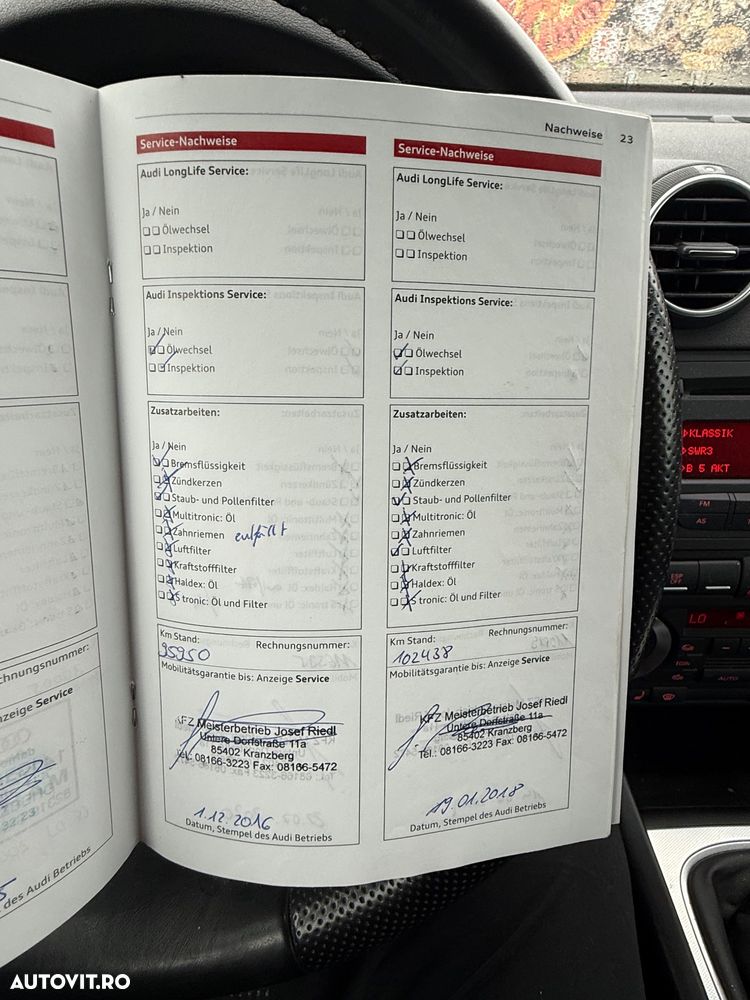 Nachweise 23
Service-Nachweise
Audi LongLife Service:
Ja / Nein
Ölwechsel
Inspektion
Audi Inspektions Service:
Ja / Nein
Ölwechsel
Inspektion
Zusatzarbeiten:
Ja / Nein
Bremsflüssigkeit
Zündkerzen
Staub- und Pollenfilter
Multitronic: Öl
Zahnriemen entfällt
Luftfilter
Kraftstofffilter
Haldex: Öl
S tronic: Öl und Filter
Km Stand: Rechnungsnummer:
95950
Mobilitätsgarantie bis: Anzeige Service
KFZ Meisterbetrieb Josef Riedl
Untere Dorfstraße 11a
85402 Kranzberg
Tel.: 08166-3223 Fax: 08166-5472
1.12.2016
Datum, Stempel des Audi Betriebs
Service-Nachweise
Audi LongLife Service:
Ja / Nein
Ölwechsel
Inspektion
Audi Inspektions Service:
Ja / Nein
Ölwechsel
Inspektion
Zusatzarbeiten:
Ja / Nein
Bremsflüssigkeit
Zündkerzen
Staub- und Pollenfilter
Multitronic: Öl
Zahnriemen
Luftfilter
Kraftstofffilter
Haldex: Öl
S tronic: Öl und Filter
Km Stand: Rechnungsnummer:
102438
Mobilitätsgarantie bis: Anzeige Service
KFZ Meisterbetrieb Josef Riedl
Untere Dorfstraße 11a
85402 Kranzberg
Tel.: 08166-3223 Fax: 08166-5472
19.01.2018
Datum, Stempel des Audi Betriebs
Rechnungsnummer:
nzeige Service
des Audi Betriebs
KLASSIK
SWR3
B 5 AKT
FM
AS
ESP
OFF
LO
ECON
AUTO
AUTOVIT.RO